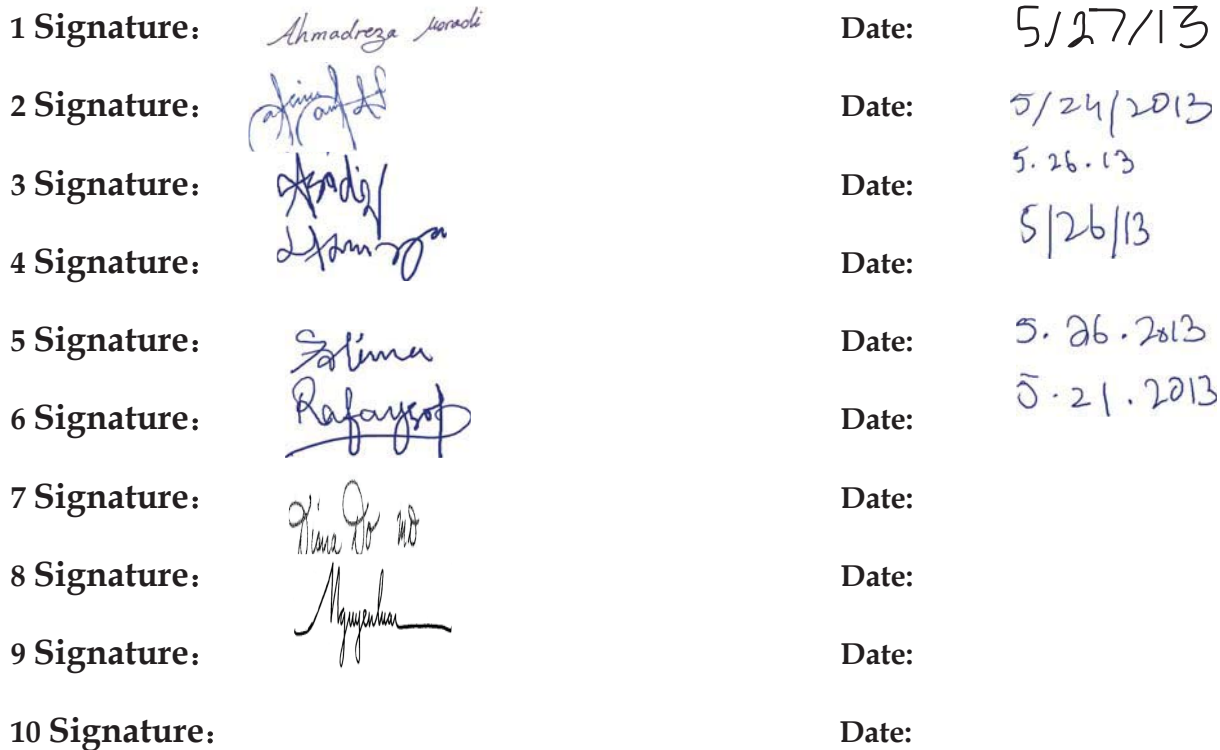 1 Signature: Ahmadreza Moradi Date: 5/27/13
2 Signature: Date: 5/24/2013
3 Signature: Date: 5.26.13
4 Signature: Date: 5/26/13
5 Signature: Fatima Date: 5.26.2013
6 Signature: Date: 5.21.2013
7 Signature: Diana Do MD Date:
8 Signature: Date:
9 Signature: Date:
10 Signature: Date: